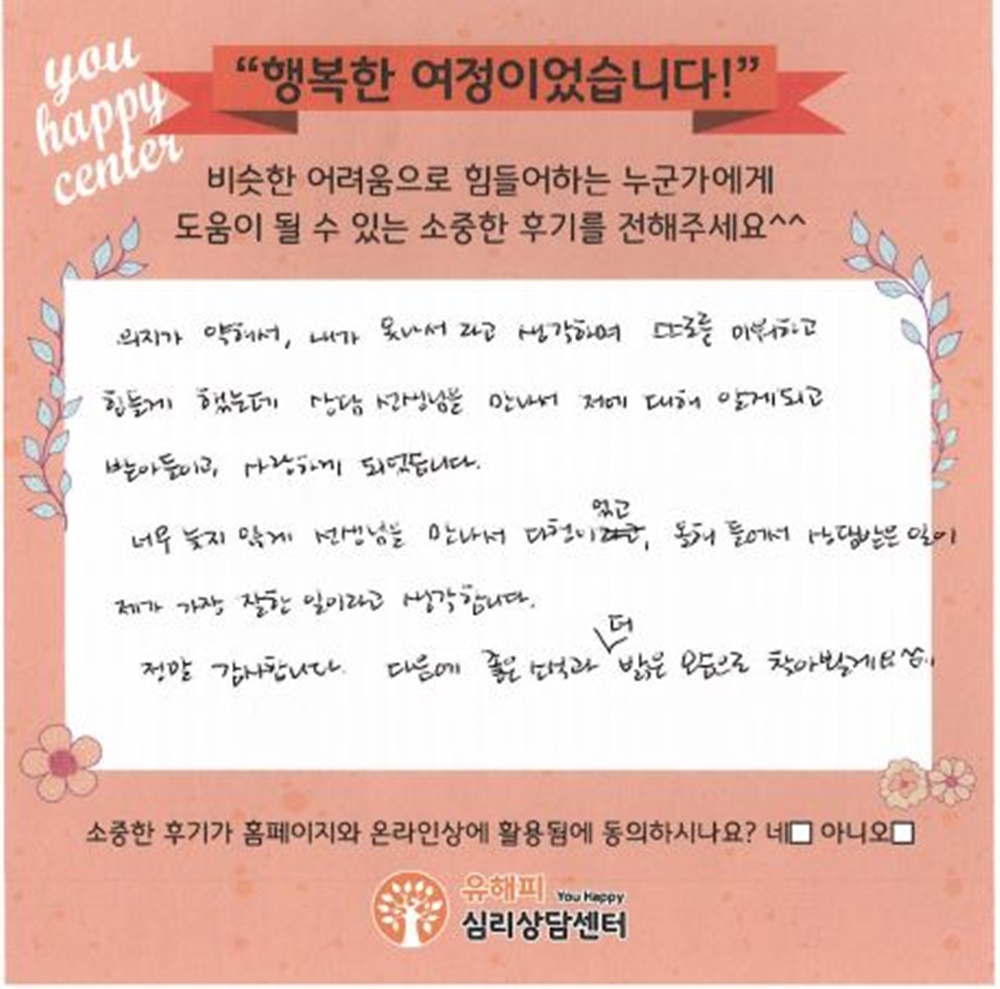 you
happy
center
“행복한 여정이었습니다!”
비슷한 어려움으로 힘들어하는 누군가에게
도움이 될 수 있는 소중한 후기를 전해주세요^^
의지가 약해서, 내가 못나서 라고 생각하며 스스로를 미워하고
힘들게 했는데 상담 선생님을 만나서 저에 대해 알게되고
받아들이고, 사랑하게 되었습니다.
너무 늦지 않게 선생님을 만나서 다행이었고, 올해 들어서 상담받은 일이
제가 가장 잘한 일이라고 생각합니다.
정말 감사합니다. 다음에 좋은 소식과 더 밝은 모습으로 찾아뵐게요^^
소중한 후기가 홈페이지와 온라인상에 활용됨에 동의하시나요? 네□ 아니오□
유해피 You Happy
심리상담센터